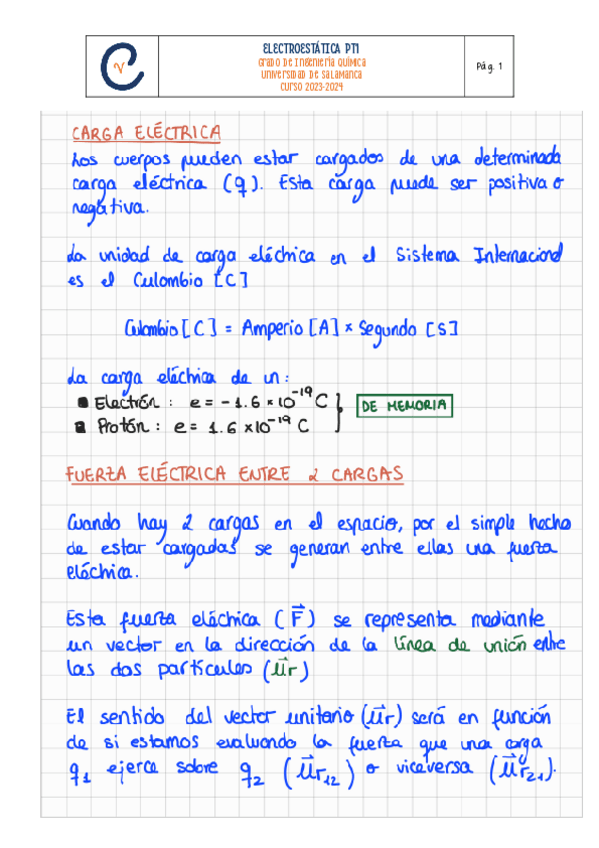 ELECTROESTÁTICA PT1
Grado de Ingeniería Química
Universidad de Salamanca
Curso 2023-2024
Pág. 1
CARGA ELÉCTRICA
Los cuerpos pueden estar cargados de una determinada
carga eléctrica (q). Esta carga puede ser positiva o
negativa.
La unidad de carga eléctrica en el Sistema Internacional
es el Culombio [C]
Culombio [C] = Amperio [A] × Segundo [S]
La carga eléctrica de un:
▪ Electrón: e = -1.6 × 10⁻¹⁹ C
▪ Protón: e = 1.6 × 10⁻¹⁹ C
DE MEMORIA
FUERZA ELÉCTRICA ENTRE 2 CARGAS
Cuando hay 2 cargas en el espacio, por el simple hecho
de estar cargadas se generan entre ellas una fuerza
eléctrica.
Esta fuerza eléctrica (F⃗) se representa mediante
un vector en la dirección de la línea de unión entre
las dos partículas (u⃗r)
El sentido del vector unitario (u⃗r) será en función
de si estamos evaluando la fuerza que una carga
q₁ ejerce sobre q₂ (u⃗r₁₂) o viceversa (u⃗r₂₁).